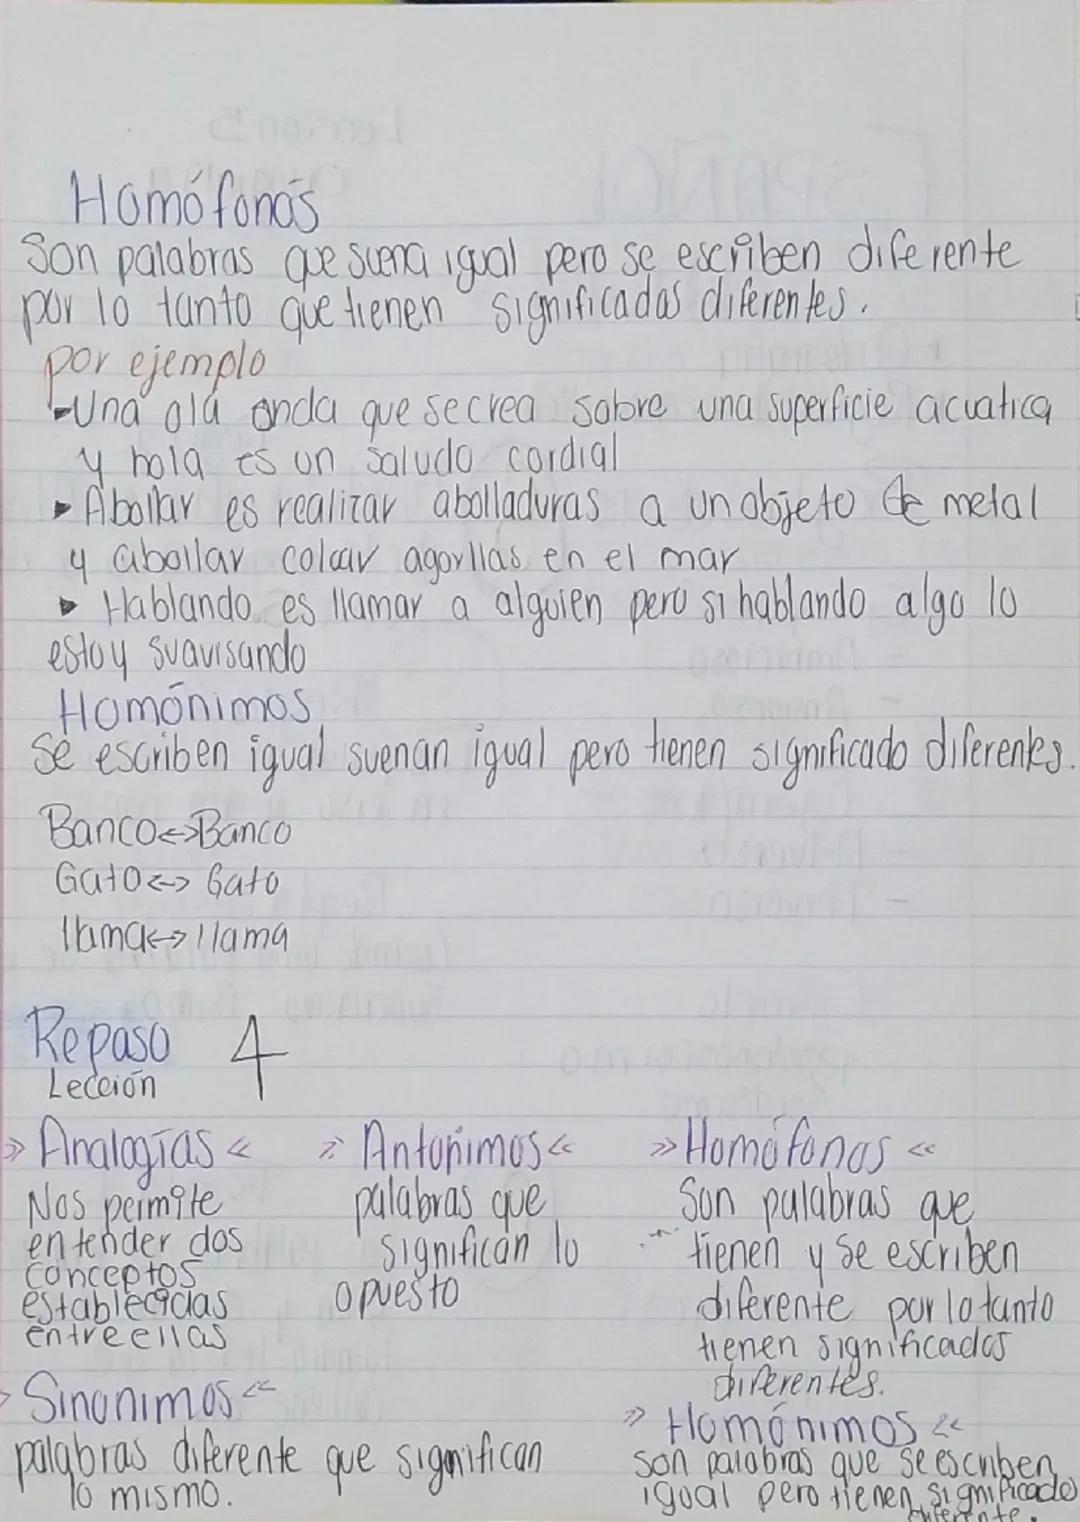 Homófonos
Son palabras que suena igual pero se escriben diferente
por lo tanto que tienen significados diferentes.
por ejemplo
Una ola onda que se crea sobre una superficie acuatica
y hola es un saludo cordial
Abollar es realizar abolladuras a un objeto de metal
y abollar colcar agorllas en el mar
Hablando es llamar a alguien pero si hablando algo lo
estoy suavisando
Homónimos
Se escriben igual suenan igual pero tienen significado diferentes.
Banco<->Banco
Gato<-> Gato
llama<-> llama
Repaso 4
Lección
» Analogías «
Nos permite
entender dos
conceptos
establecidas
entre ellas
» Antonimos «
palabras que
significan lo
opuesto
» Homófonos «
Son palabras que
tienen y se escriben
diferente por lo tanto
tienen significados
diferentes.
Sinonimos «
palabras diferente que significan
lo mismo.
» Homónimos «
son palabras que se escriben
igual pero tienen significado
diferente.